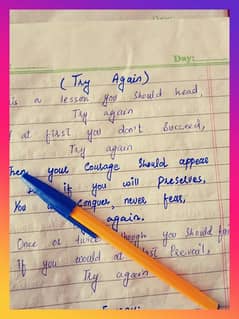 Day:
(Try Again)
is a lesson you should head,
Try again
at first you don't Succeed,
Try again
Then your Courage Should appear
if you will Preserves,
You Conquer, never fear,
again.
Once or twice though you Should fa
If you would at last Prevail,
Try again